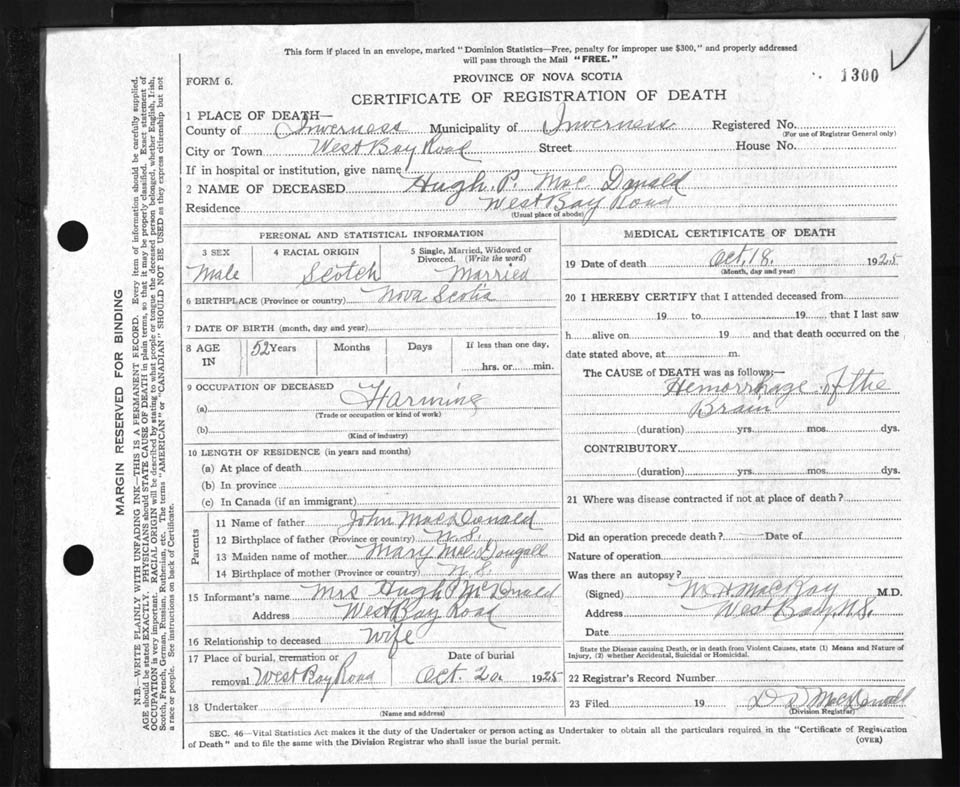 This form if placed in an envelope, marked "Dominion Statistics—Free, penalty for improper use $300," and properly addressed
will pass through the Mail "FREE."
FORM 6.
PROVINCE OF NOVA SCOTIA
1300
CERTIFICATE OF REGISTRATION OF DEATH
1 PLACE OF DEATH—
County of Inverness Municipality of Inverness Registered No.
(For use of Registrar General only)
City or Town West Bay Road Street House No.
If in hospital or institution, give name
2 NAME OF DECEASED Hugh P. Mac Donald
Residence West Bay Road
(Usual place of abode)
PERSONAL AND STATISTICAL INFORMATION
3 SEX 4 RACIAL ORIGIN 5 Single, Married, Widowed or
Divorced. (Write the word)
Male Scotch Married
6 BIRTHPLACE (Province or country) Nova Scotia
7 DATE OF BIRTH (month, day and year)
8 AGE IN 52 Years Months Days If less than one day,
hrs. or min.
9 OCCUPATION OF DECEASED
(a) Farming
(Trade or occupation or kind of work)
(b)
(Kind of industry)
10 LENGTH OF RESIDENCE (in years and months)
(a) At place of death
(b) In province
(c) In Canada (if an immigrant)
Parents
11 Name of father John MacDonald
12 Birthplace of father (Province or country) N.S.
13 Maiden name of mother Mary MacDougall
14 Birthplace of mother (Province or country) N.S.
15 Informant's name Mrs Hugh P McDonald
Address West Bay Road
16 Relationship to deceased Wife
17 Place of burial, cremation or Date of burial
removal West Bay Road Oct. 20 1925
18 Undertaker
(Name and address)
MEDICAL CERTIFICATE OF DEATH
19 Date of death Oct. 18. 1925
(Month, day and year)
20 I HEREBY CERTIFY that I attended deceased from
19 to 19 that I last saw
h alive on 19 and that death occurred on the
date stated above, at m.
The CAUSE of DEATH was as follows:—
Hemorrhage of the
Brain
(duration) yrs. mos. dys.
CONTRIBUTORY
(duration) yrs. mos. dys.
21 Where was disease contracted if not at place of death?
Did an operation precede death? — Date of
Nature of operation
Was there an autopsy?
(Signed) MacKay M.D.
Address West Bay, N.S.
Date
State the Disease causing Death, or in death from Violent Causes, state (1) Means and Nature of
Injury, (2) whether Accidental, Suicidal or Homicidal.
22 Registrar's Record Number
23 Filed 19 D D MacDonald
(Division Registrar)
SEC. 46—Vital Statistics Act makes it the duty of the Undertaker or person acting as Undertaker to obtain all the particulars required in the "Certificate of Registration
of Death" and to file the same with the Division Registrar who shall issue the burial permit.
(OVER)
MARGIN RESERVED FOR BINDING
N.B.—WRITE PLAINLY WITH UNFADING INK—THIS IS A PERMANENT RECORD. Every item of information should be carefully supplied.
AGE should be stated EXACTLY. PHYSICIANS should STATE CAUSE OF DEATH in plain terms, so that it may be properly classified. Exact statement of
OCCUPATION is very important. RACIAL ORIGIN will be described by stating to what people or tongue the deceased person belonged, whether English, Irish,
Scotch, French, German, Russian, Ruthenian, etc. The terms "AMERICAN" or "CANADIAN" SHOULD NOT BE USED as they express citizenship but not
a race or people. See instructions on back of Certificate.